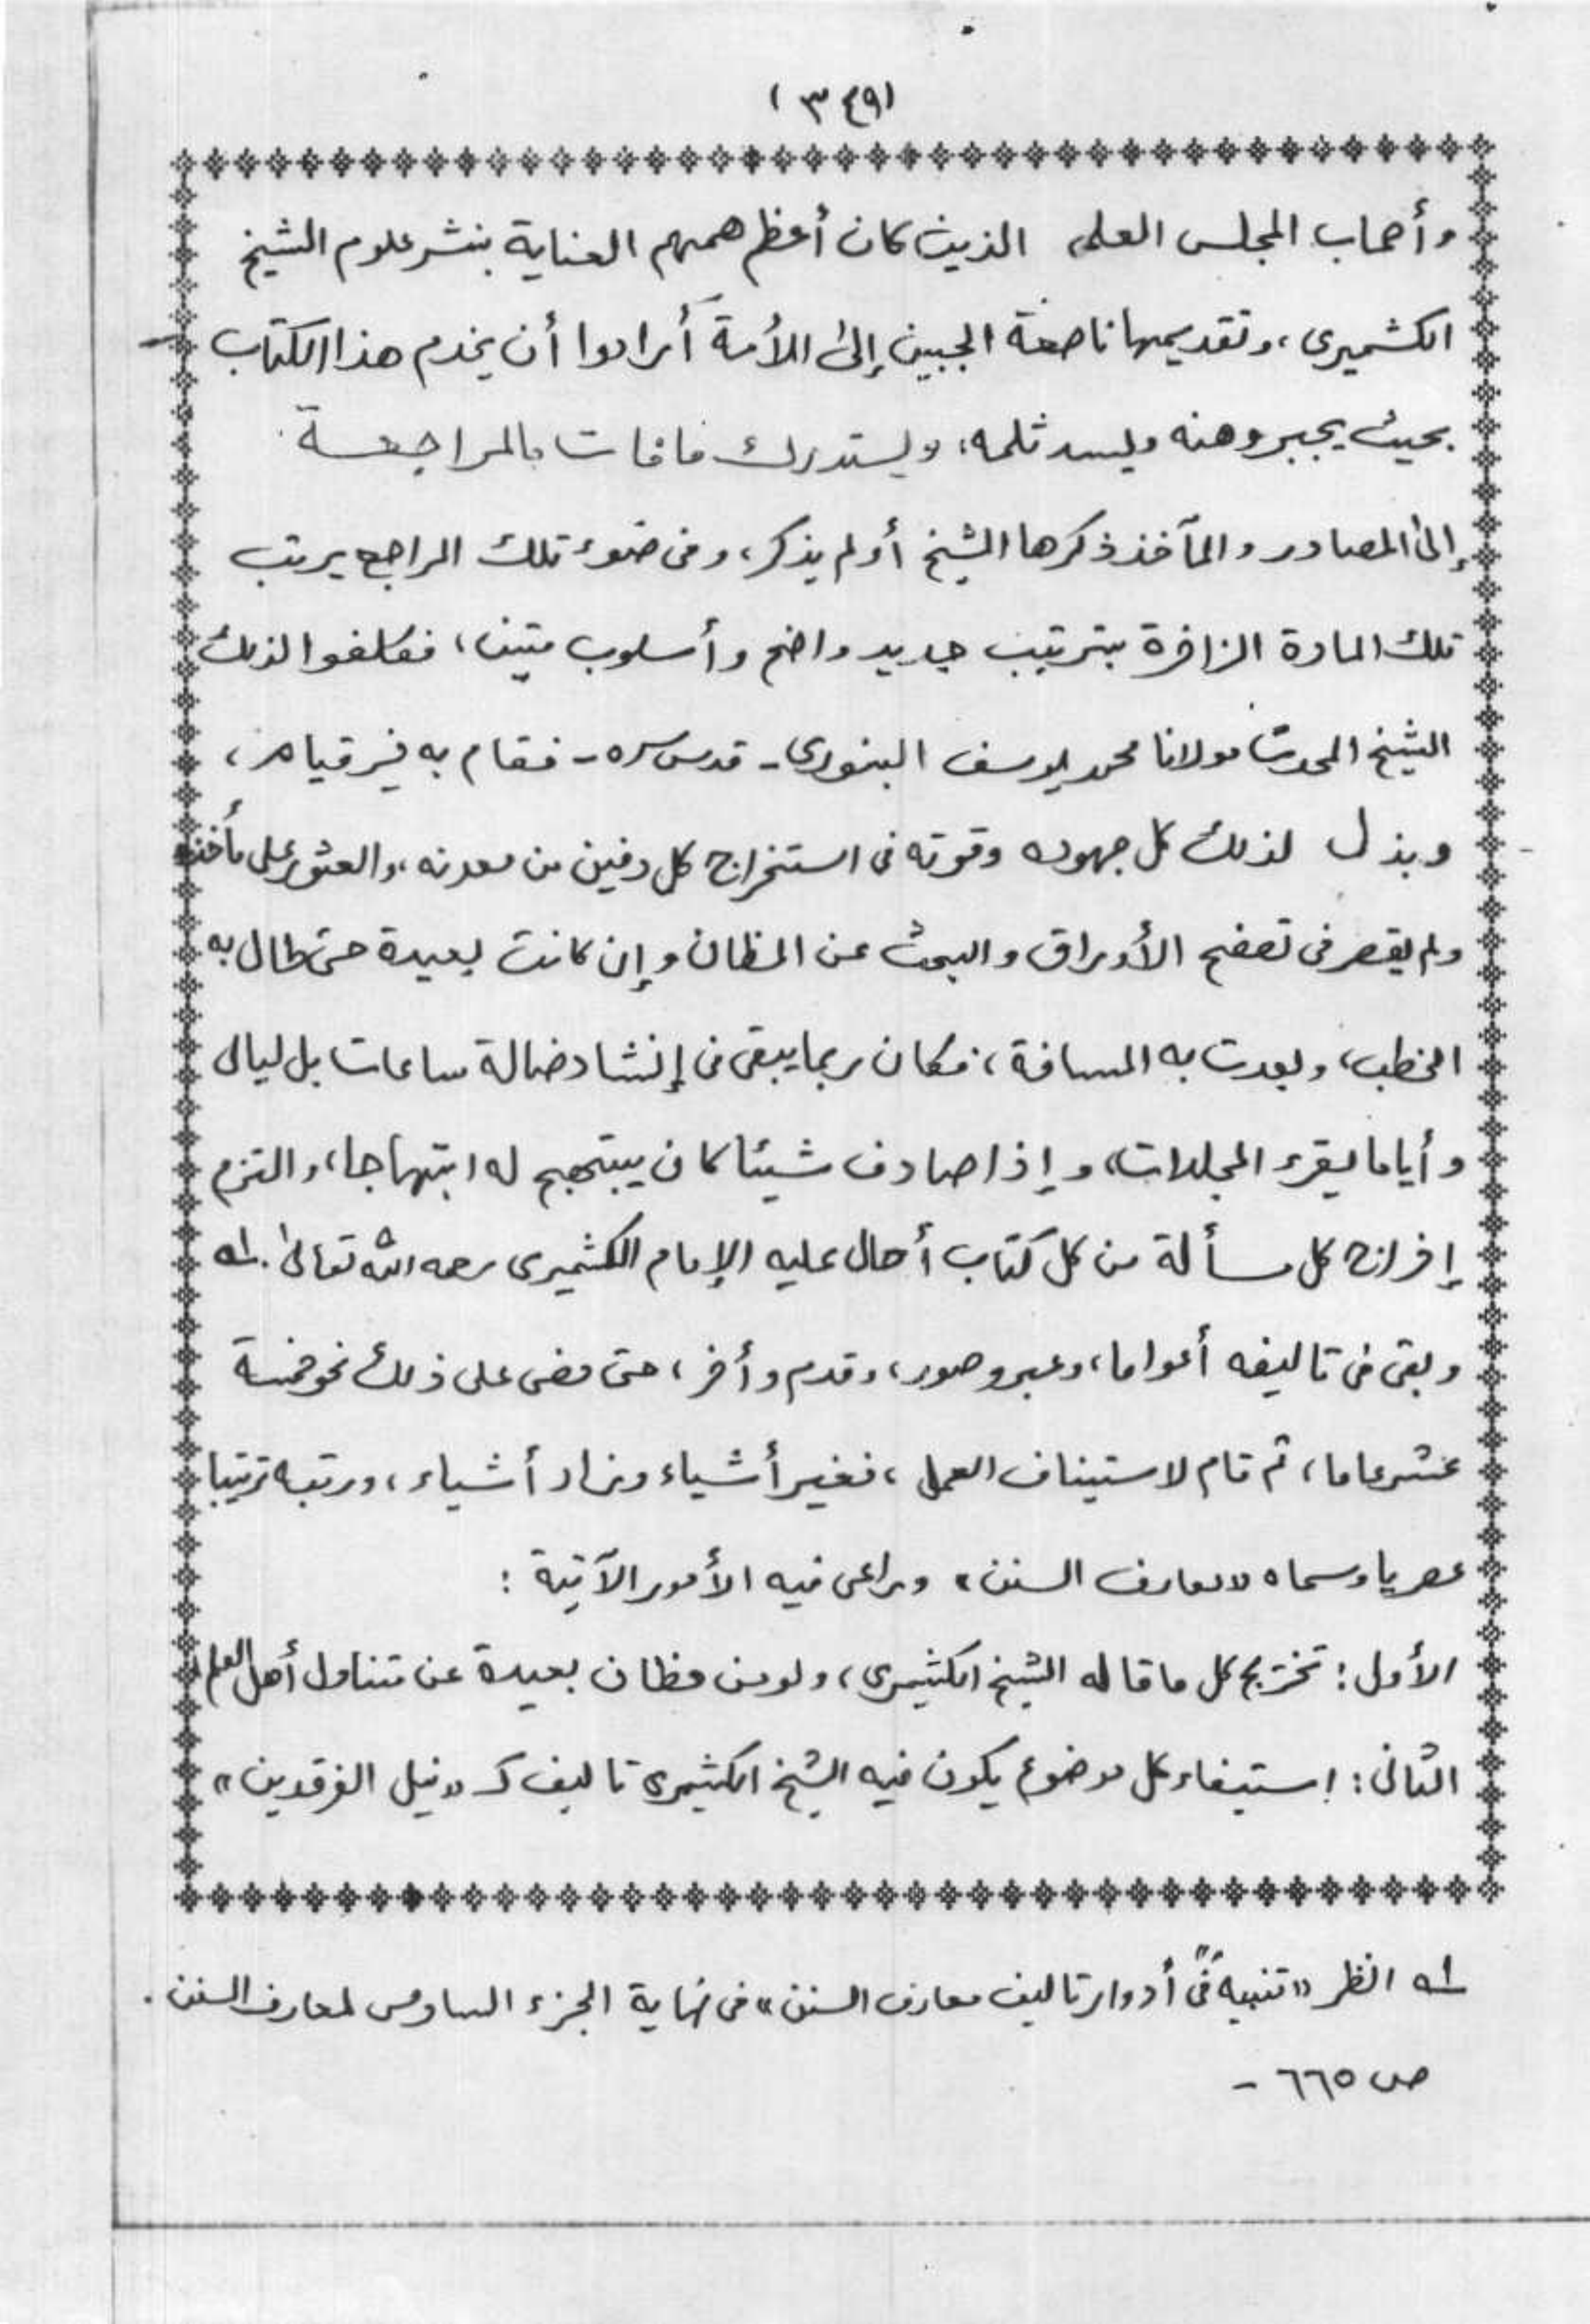 (٣٤٩)
وأصحاب المجلس العلمى الذين كان أعظم هممهم العناية بنشر علوم الشيخ
الكشميرى، وتقديمها ناصعة الجبين إلى الأمة أرادوا أن يخدم هذا الكتاب
بحيث يجبر وهنه ويسد ثلمه، ويستدرك مافات بالمراجعة
إلى المصادر والمآخذ ذكرها الشيخ أو لم يذكر، وفى ضوء تلك المراجع يرتب
تلك المادة الزاخرة بترتيب جديد واضح وأسلوب متين، فكلفوا لذلك
الشيخ المحدث مولانا محمد يوسف البنورى - قدس سره - فقام به خير قيام،
وبذل لذلك كل جهوده وقوته فى استخراج كل دفين من معدنه، والعثور على مأخذه
ولم يقصر فى تصفح الأوراق والبحث عن المظان وإن كانت بعيدة حتى طال به
الخطب، وبعدت به المسافة، فكان ربما يبقى فى إنشاد ضالة ساعات بل ليالى
وأياما يقرء المجلدات، وإذا صادف شيئا كان يبتهج له ابتهاجا، والتزم
إفراز كل مسألة من كل كتاب أحال عليه الإمام الكشميرى رحمه الله تعالى. له
وبقى فى تاليفه أعواما، وعبر وصور، وقدم وأخر، حتى مضى على ذلك نحو خمسة
عشر عاما، ثم قام لاستيناف العمل، فغير أشياء وزاد أشياء، ورتبه ترتيبا
عصريا وسماه «معارف السنن» وراعى فيه الأمور الآتية :
الأول : تخريج كل ما قاله الشيخ الكشميرى، ولو من مظان بعيدة عن متناول أهل العلم
الثانى : استيفاء كل موضوع يكون فيه الشيخ الكشميرى تاليف كـ «نيل الفرقدين»
له انظر «تنبيه فى أدوار تاليف معارف السنن» فى نهاية الجزء السادس لمعارف السنن .
ص ٦٦٥ -